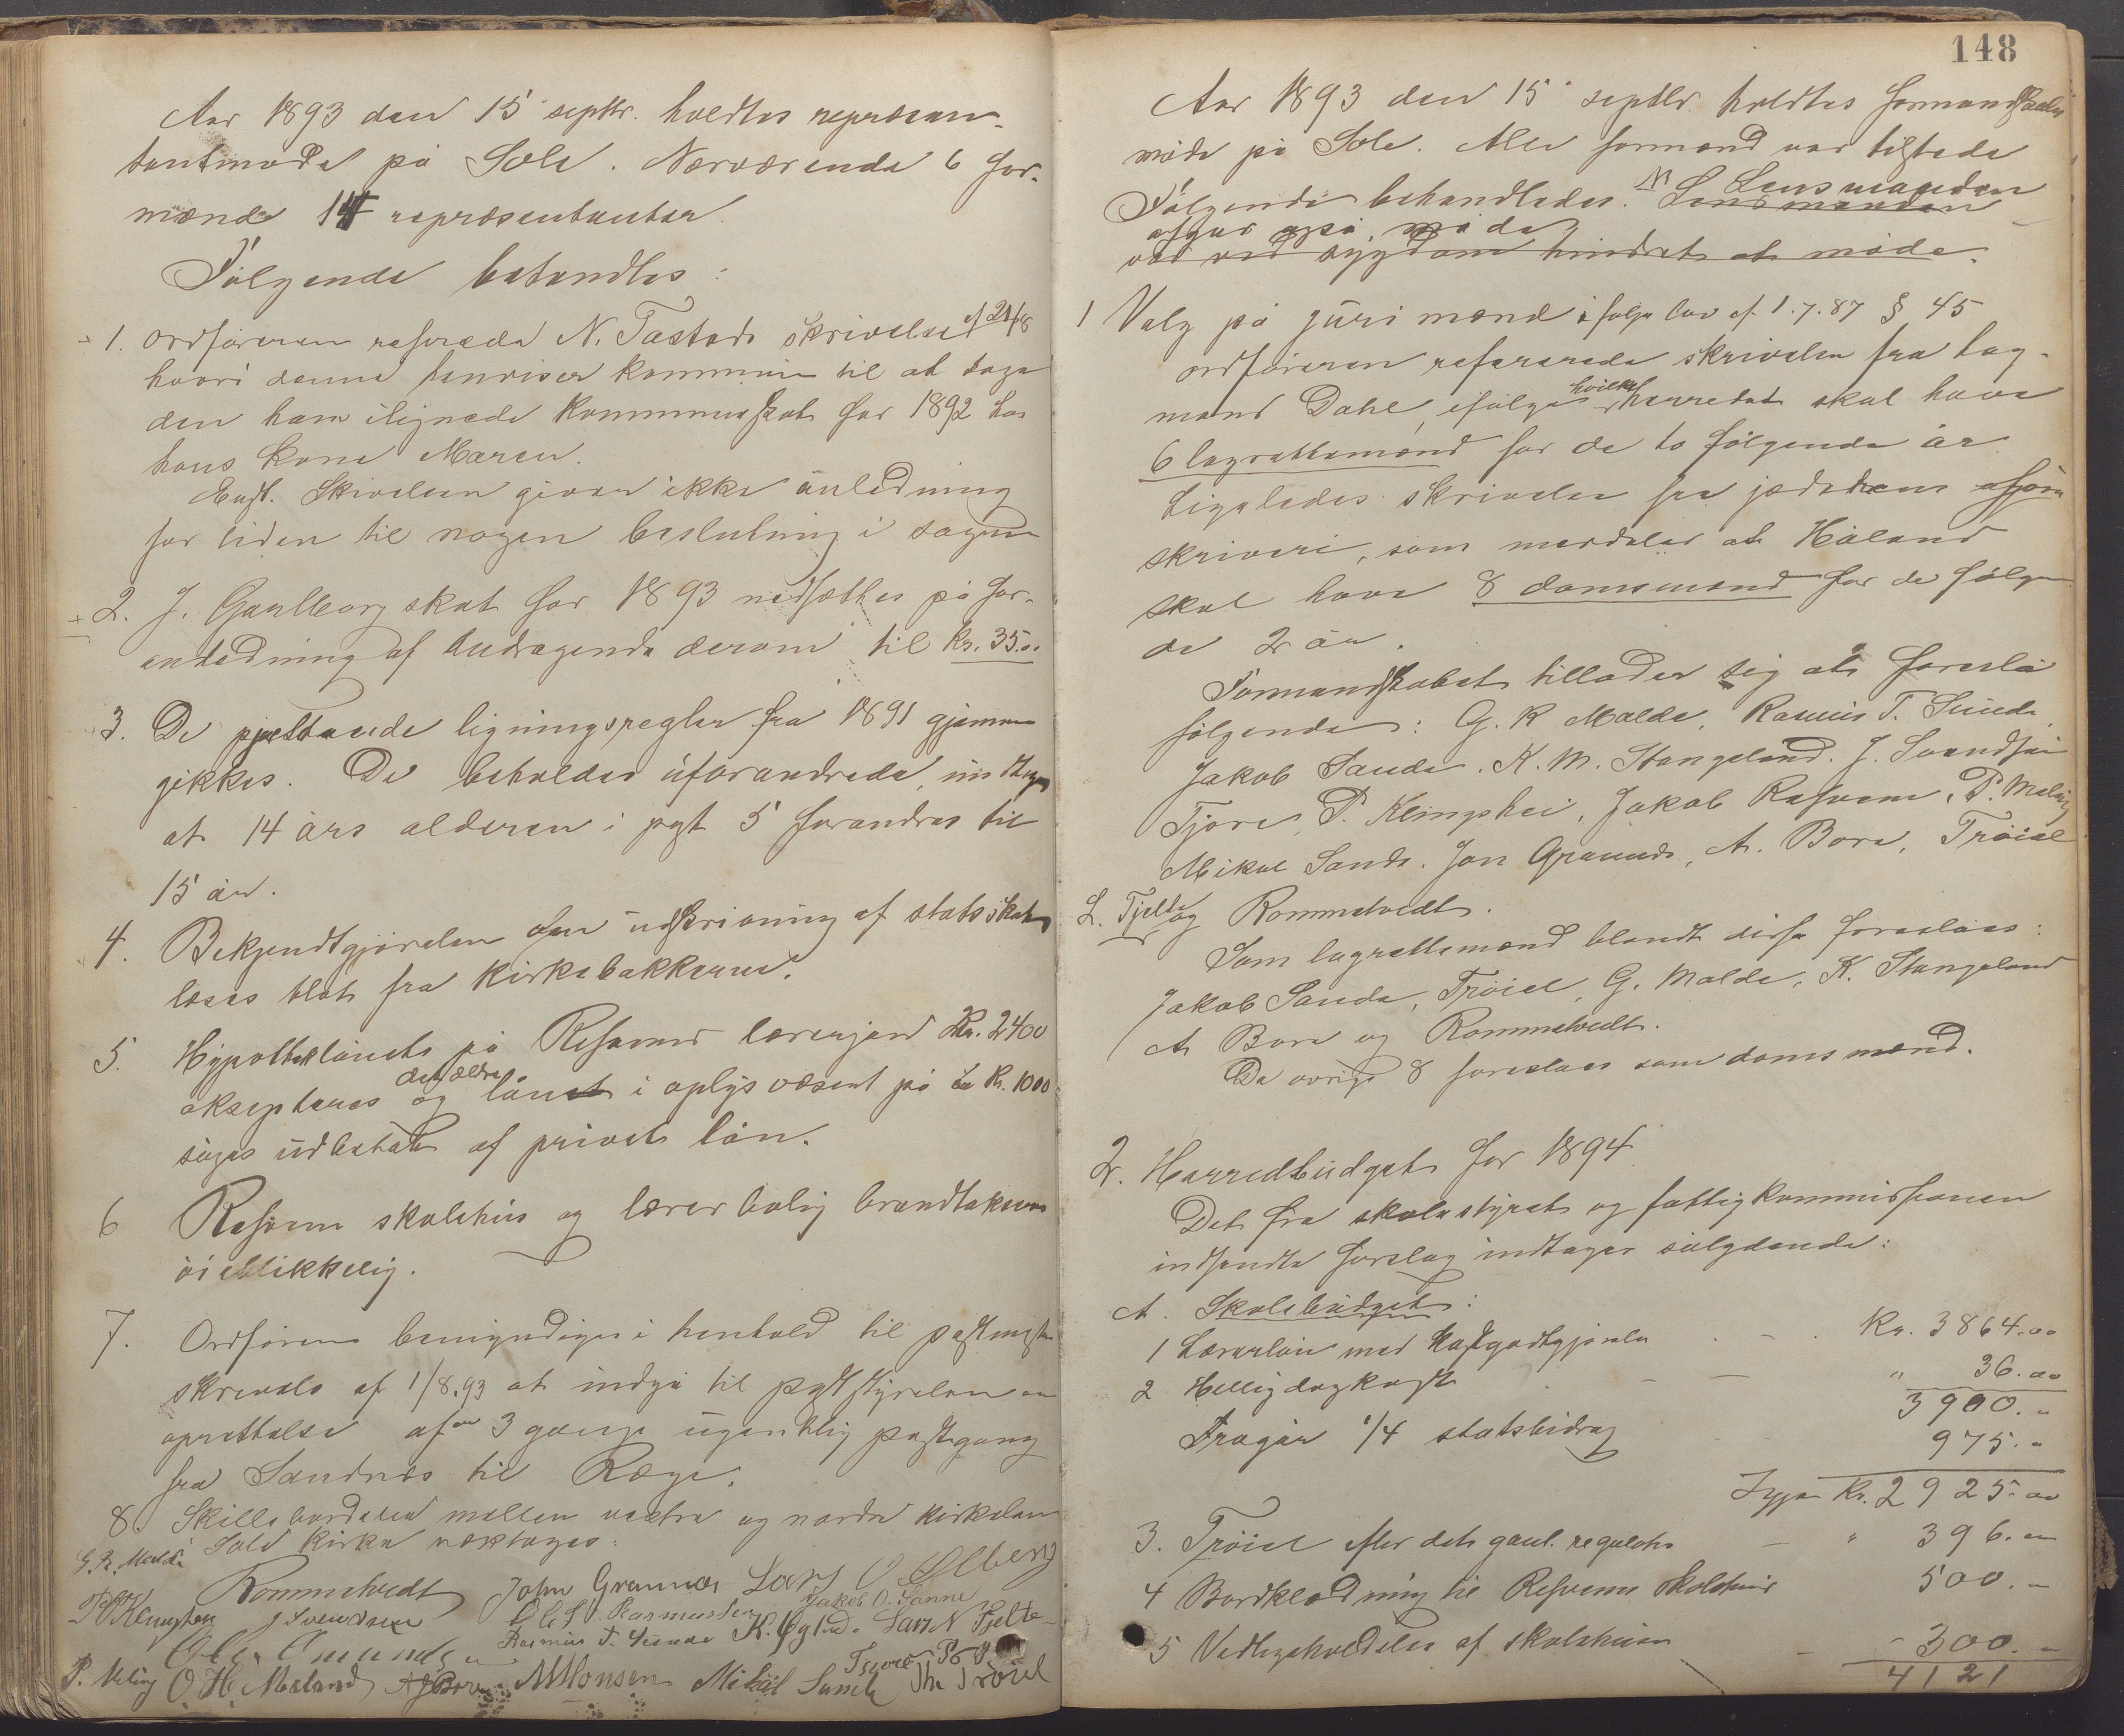 Aar 1893 den 15 septbr. holdtes repræsen-
tantmøde på Sole. Nærværende 6 for-
mænd 14 repræsentanter.
Følgende behandles:
1. Ordføreren refererede N. Tastads skrivelse af 21/8
hvori denne henviser kommunen til at tage
den ham ilignede kommuneskat for 1892 hos
hans kone Maren.
Enst. Skrivelsen giver ikke anledning
for tiden til nogen beslutning i sagen
2. J. Gaulborg skat for 1893 nedsættes på for-
anledning af andragende derom til kr. 35.00
3. De gjældende ligningsregler fra 1891 gjennem
gikkes. De beholdes uforandrede, undtagen
at 14 års alderen i pgt 5 forandres til
15 år.
4. Bekjendtgjørelsen om udskrivning af statsskat
læses blot fra kirkebakkerne.
5. Hypotheklånet på Refsnes lærerjord Kr. 2400
aksepteres og det ældre lånet i oplysvæsent på Kr. 1000
søges udbetalt af privat lån.
6 Refsnes skolehus og lærerbolig brandtakseres
øieblikkelig.
7. Ordføreren bemyndiges i henhold til postmester
skrivelse af 1/8.93 at indgå til poststyrelsen om
oprettelse af en 3 gange ugentlig postgang
fra Sandnes til Ræge.
8. Skillebordene mellem vestre og nordre kirkelem
Sole kirke væktages.
G. R. Malde
Rommetvedt John Grannes Lars O Ølberg
P. Klingshei J Svendsen Ole S. Rasmussen Jakob O. Sanne
Ole Omundsen Rasmus T. Sunde K. Øglend. Lars N Tjelte
Tjore
P. Meling O. H. Meland A J Bore M Monsen Mikal Sande Th. Trøiel
148
Aar 1893 den 15 septbr. holdtes formandskabs
møde på Sole. Alle formænd var tilstede
Følgende behandledes. NB Lensmanden Lensmanden
afgav også møde
var ved sygdom hindret at møde.
1 Valg på jurimænd ifølge lov af 1.7.87 § 45
ordføreren refererede skrivelse fra lag-
mand Dahl, ifølge hvilken herredet skal have
6 lagrettemænd for de to følgende år
Ligeledes skrivelse fra jæderens
skriveri, som meddeler at Håland
skal have 8 domsmænd for de følgen
de 2 år.
Formandskabet tillader sig at foreslå
følgende: G. R Malde, Rasmus T. Sunde
Jakob Sande. K. M. Stangeland. J. Svendsen
Tjore, P. Klingshei, Jakob Refsnes, P. Meling
Mikal Sande. Jon Grannes, A. Bore, Trøiel
L. Tjelte og Rommetvedt.
Som lagrettemænd blandt disse foreslåes:
Jakob Sande, Trøiel, G. Malde, K. Stangeland
A Bore og Rommetvedt.
De øvrige 8 foreslåes som domsmænd.
2. Herredbudget for 1894
Det fra skolestyret og fattigkommissionen
indsendte forslag indtages sålydende:
A. Skolebudget:
1 Lærerløn med kostgodtgjørelse Kr. 3864.00
2 Helligdagkost " 36.00
3900.-
Fragår 1/4 statsbidrag 975.-
Igjen Kr. 2925.00
3. Trøiel efter det gaml. regulativ " 396.00
4 Bordklædning til Refsnes skolehus 500.-
5 Vedligeholdelse af skolehusene 300.-
4121